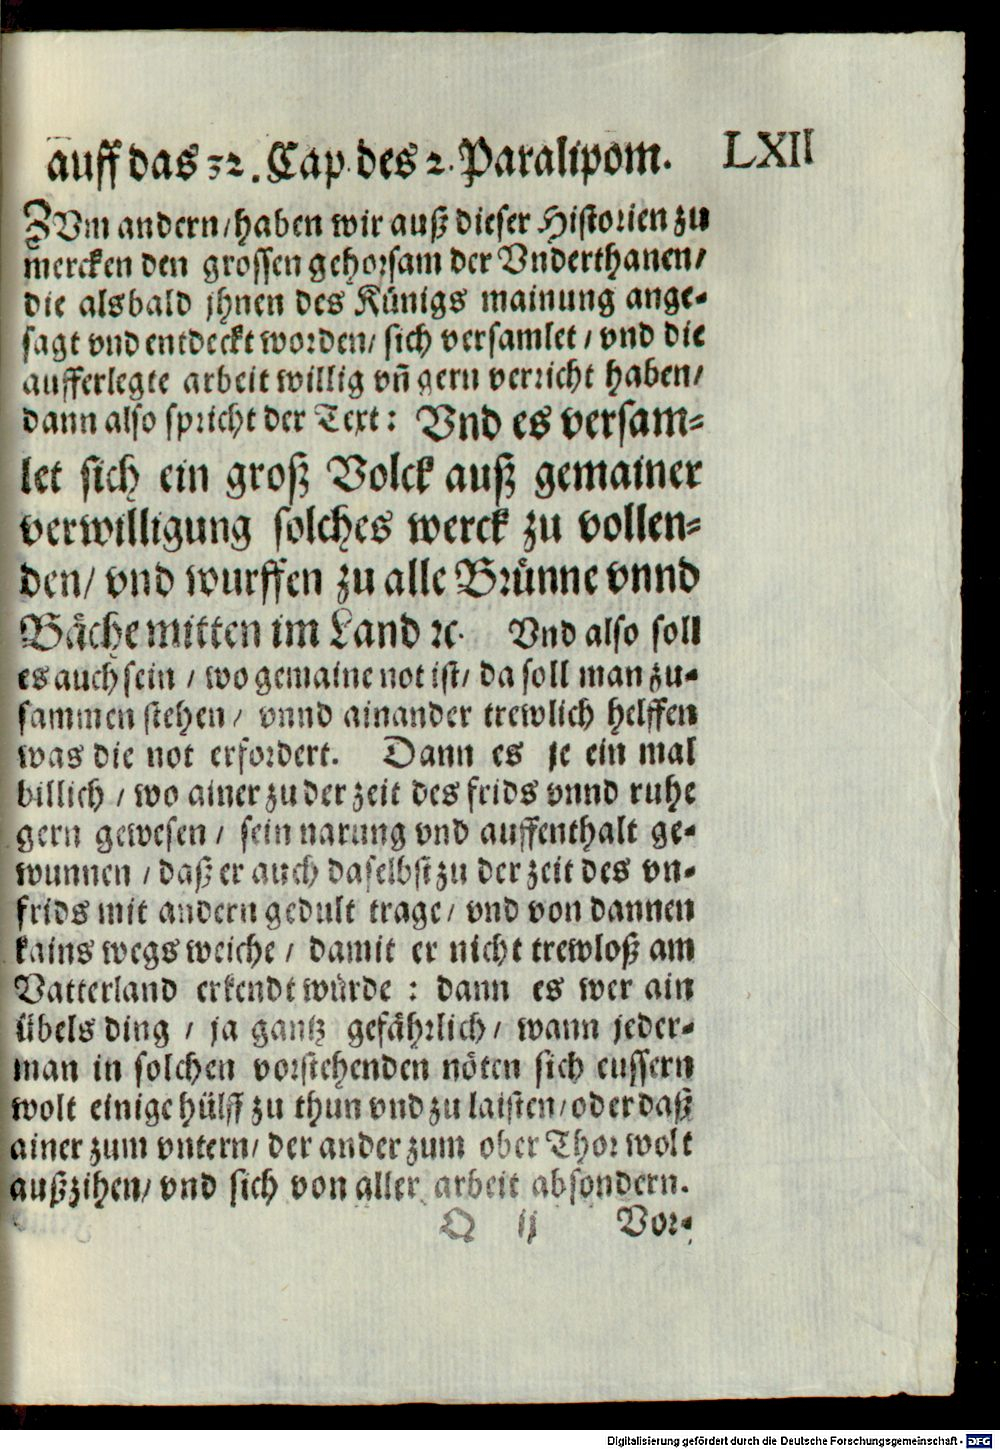 auff das 32. Cap. des 2. Paralipom. LXII
ZVm andern/ haben wir auß dieser Historien zu
mercken den grossen gehorsam der Vnderthanen/
die alsbald jhnen des Künigs mainung ange-
sagt vnd entdeckt worden/ sich versamlet/ vnd die
aufferlegte arbeit willig vñ gern verricht haben/
dann also spricht der Text: Vnd es versam-
let sich ein groß Volck auß gemainer
verwilligung solches werck zu vollen-
den/ vnd wurffen zu alle Brünne vnnd
Bäche mitten im Land ꝛc. Vnd also soll
es auch sein/ wo gemaine not ist/ da soll man zu-
sammen stehen/ vnnd ainander trewlich helffen
was die not erfordert. Dann es je ein mal
billich/ wo ainer zu der zeit des frids vnnd ruhe
gern gewesen/ sein narung vnd auffenthalt ge-
wunnen/ daß er auch daselbst zu der zeit des vn-
frids mit andern gedult trage/ vnd von dannen
kains wegs weiche/ damit er nicht trewloß am
Vatterland erkendt würde: dann es wer ain
übels ding/ ja gantz gefährlich/ wann jeder-
man in solchen vorstehenden nöten sich eussern
wolt einige hülff zu thun vnd zu laisten/ oder daß
ainer zum vntern/ der ander zum ober Thor wolt
außzihen/ vnd sich von aller arbeit absondern.
Q ij Vor-
Digitalisierung gefördert durch die Deutsche Forschungsgemeinschaft - DFG